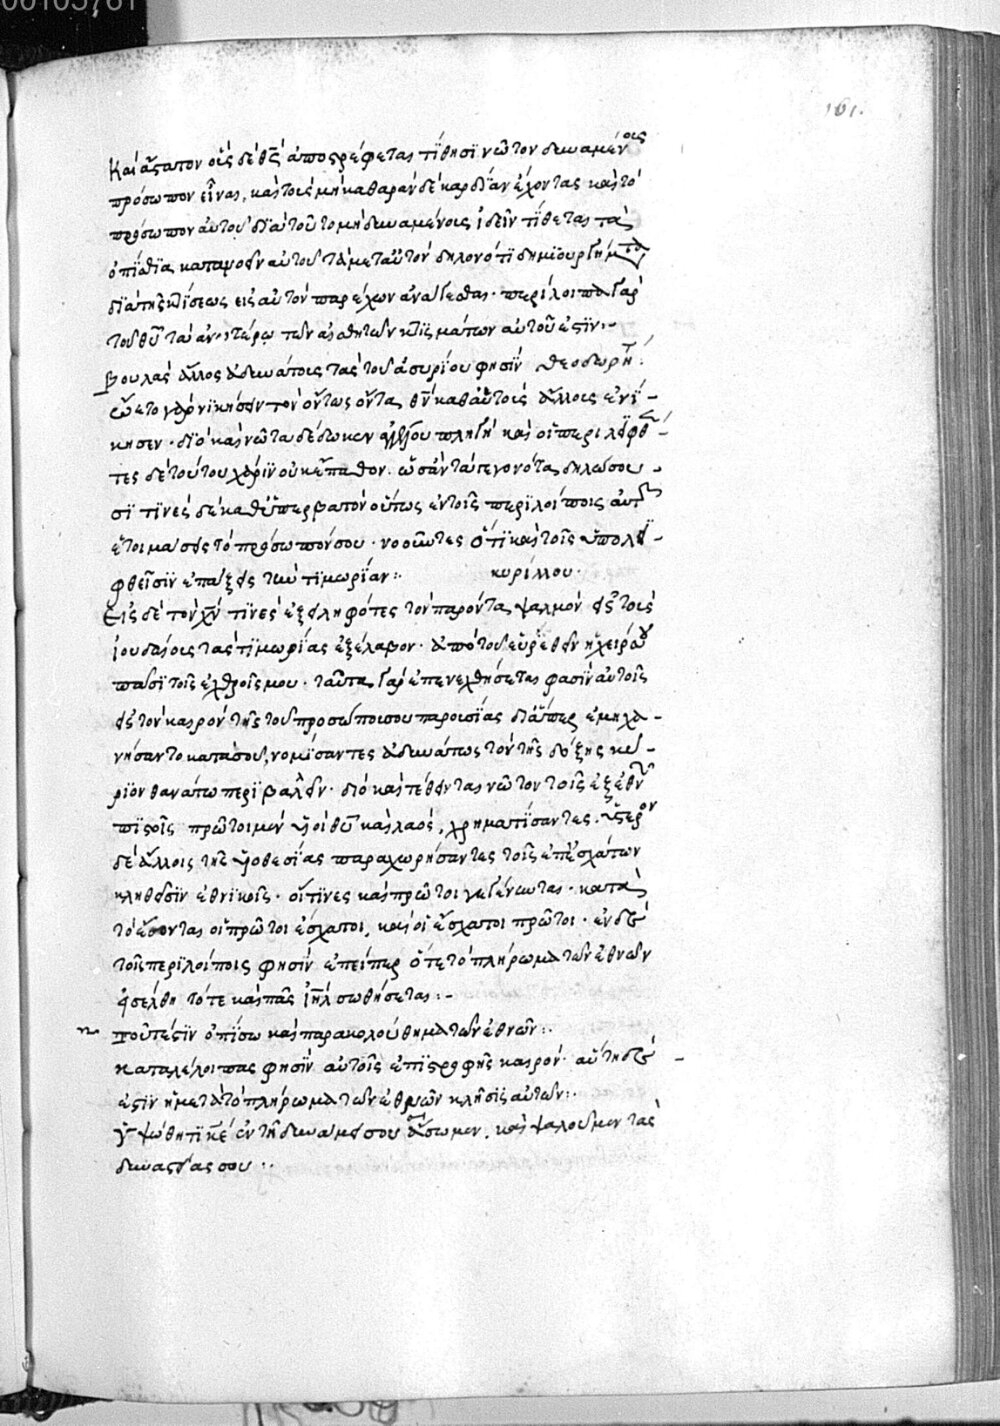 161.
Καὶ ἄξαπτον οἷς δὲ θς̅ ἀποστρέφεται τίθησι νῶτον δυναμένοις
πρόσωπον εἶναι, καὶ τοῖς μὴ καθαρὰν δὲ καρδίαν ἔχοντας καὶ τὸ
πρόσωπον αὐτοῦ διὰ τοῦτο μὴ δυναμένοις ἰδεῖν τίθεται τὰ
ὀπίσθια, καταψᾶν αὐτοῦ τὰ μετ' αὐτὸν δηλονότι δημιουργήματα
διὰ τῆς κτίσεως εἰς αὐτὸν παρέχων ἀνάγεσθαι· περίλοιπα γὰρ
τοῦ θυ̅ τὰ ἀνωτέρω τῶν αἰσθητῶν κτισμάτων αὐτοῦ ἐστιν:-
Βουλὰς ἄλλος ἀδυνάτοις τὰς τοῦ ἀσυρίου φησὶν θεοδωρήτ:
ᾤετο γὰρ νικήσειν τὸν ὄντως ὄντα θν̅ καθὰ τοὺς ἄλλους ἐνί-
κησεν· διὸ καὶ νῶτα δέδωκεν ἀγγέλου πληγῇ καὶ οἱ περιλειφθέν-
τες δὲ τούτου χάριν οὐκ ἔπαθον. ὡσὰν τὰ γεγονότα δηλώσου-
σι τινὲς δὲ καθ' ὑπερβατὸν οὕτως ἐν τοῖς περιλοίποις αὐτῶν
ἑτοιμάσεις τὸ πρόσωπόν σου· νοοῦντες ὅτι καὶ τοῖς ὑπολει-
φθεῖσιν ἐπάξεις τὴν τιμωρίαν:· κυρίλλου·
Εἰς δὲ τὸν χν̅ τινὲς ἐξειληφότες τὸν παρόντα ψαλμὸν εἰς τοὺς
ἰουδαίους τὰς τιμωρίας ἐξέλαβον· ἀπὸ τοῦ εὑρεθείη ἡ χείρ σου
πᾶσι τοῖς ἐχθροῖς μου· ταῦτα γὰρ ἐπενεχθήσεται φασὶν αὐτοῖς
εἰς τὸν καιρὸν τῆς τοῦ προσώπου σου παρουσίας διάπερ ἐμηχα-
νήσαντο κατὰ σοῦ, νομίσαντες ἀδυνάτως τὸν τῆς δόξης κύ-
ριον θανάτω περιβαλεῖν· διὸ καὶ τέθεινται νῶτον τοῖς ἐξ ἐθνῶν
πιστοῖς πρῶτοι μὲν υἱοὶ θυ̅ καὶ λαὸς, χρηματίσαντες. ὕστερον
δὲ ἄλλοις τῆς υἱοθεσίας παραχωρήσαντες τοῖς ἐπ' ἐσχάτων
κληθεῖσιν ἐθνικοῖς· οἵτινες καὶ πρῶτοι γεγένωται· κατὰ
τὸ ἔσονται οἱ πρῶτοι ἔσχατοι, καὶ οἱ ἔσχατοι πρῶτοι· ἐν δὲ
τοῖς περιλοίποις φησὶν ἐπείπερ ὅτε τὸ πλήρωμα τῶν ἐθνῶν
εἰσέλθη τότε καὶ πᾶς ἰηλ̅ σωθήσεται:-
τουτέστιν ὀπίσω καὶ παρακολούθημα τῶν ἐθνῶν:·
καταλέλοιπας φησὶν αὐτοῖς ἐπιστροφῆς καιρόν· αὕτη δὲ
ἐστιν ἡ μετὰ τὸ πλήρωμα τῶν ἐθνῶν κλῆσις αὐτῶν:·
Ὑψώθητι κε̅ ἐν τῆ δυνάμει σου ἄσωμεν, καὶ ψαλοῦμεν τὰς
δυναστείας σου:·